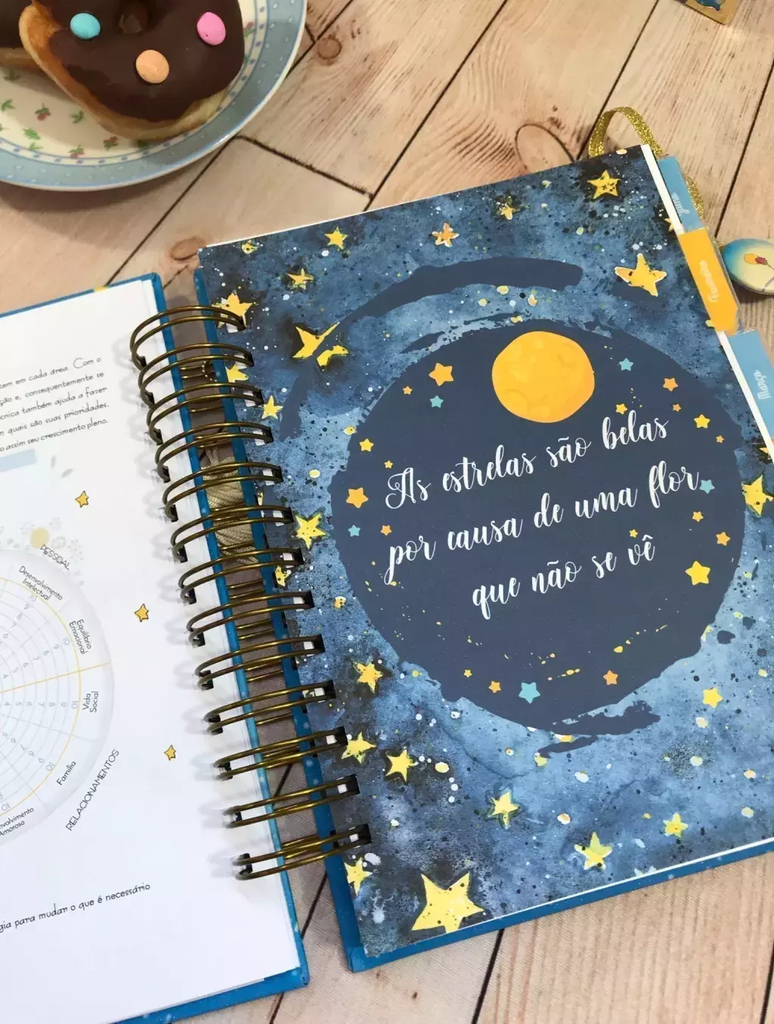 tem em cada área. Com o
ção e, consequentemente se
écnica também ajuda a fazer
m quais são suas prioridades,
o assim seu crescimento pleno.
PESSOAL
Desenvolvimento
Intelectual
Equilíbrio
Emocional
Vida
Social
Família
RELACIONAMENTOS
nvolvimento
Amoroso
gia para mudar o que é necessário
As estrelas são belas
por causa de uma flor
que não se vê
Março